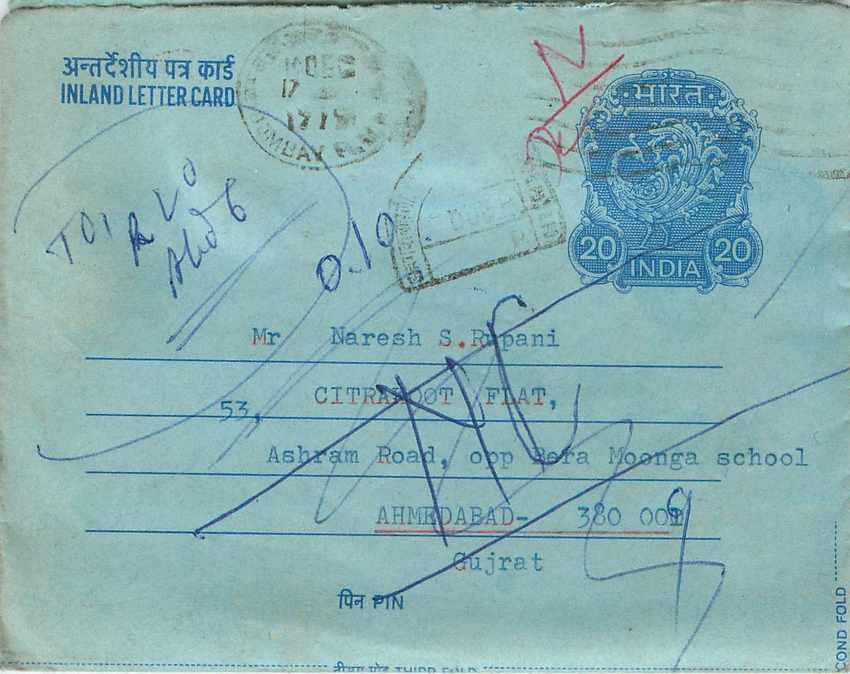 अन्तर्देशीय पत्र कार्ड
INLAND LETTER CARD
DEC
17
BOMBAY
RLO
भारत
20 20
INDIA
TO, RLO
Ahd-6
0.10
Mr Naresh S.Rupani
53, CITRAKOOT FLAT,
Ashram Road, opp Bera Moonga school
AHMEDABAD- 380 009
Gujrat
पिन PIN
THIRD FOLD
COND FOLD